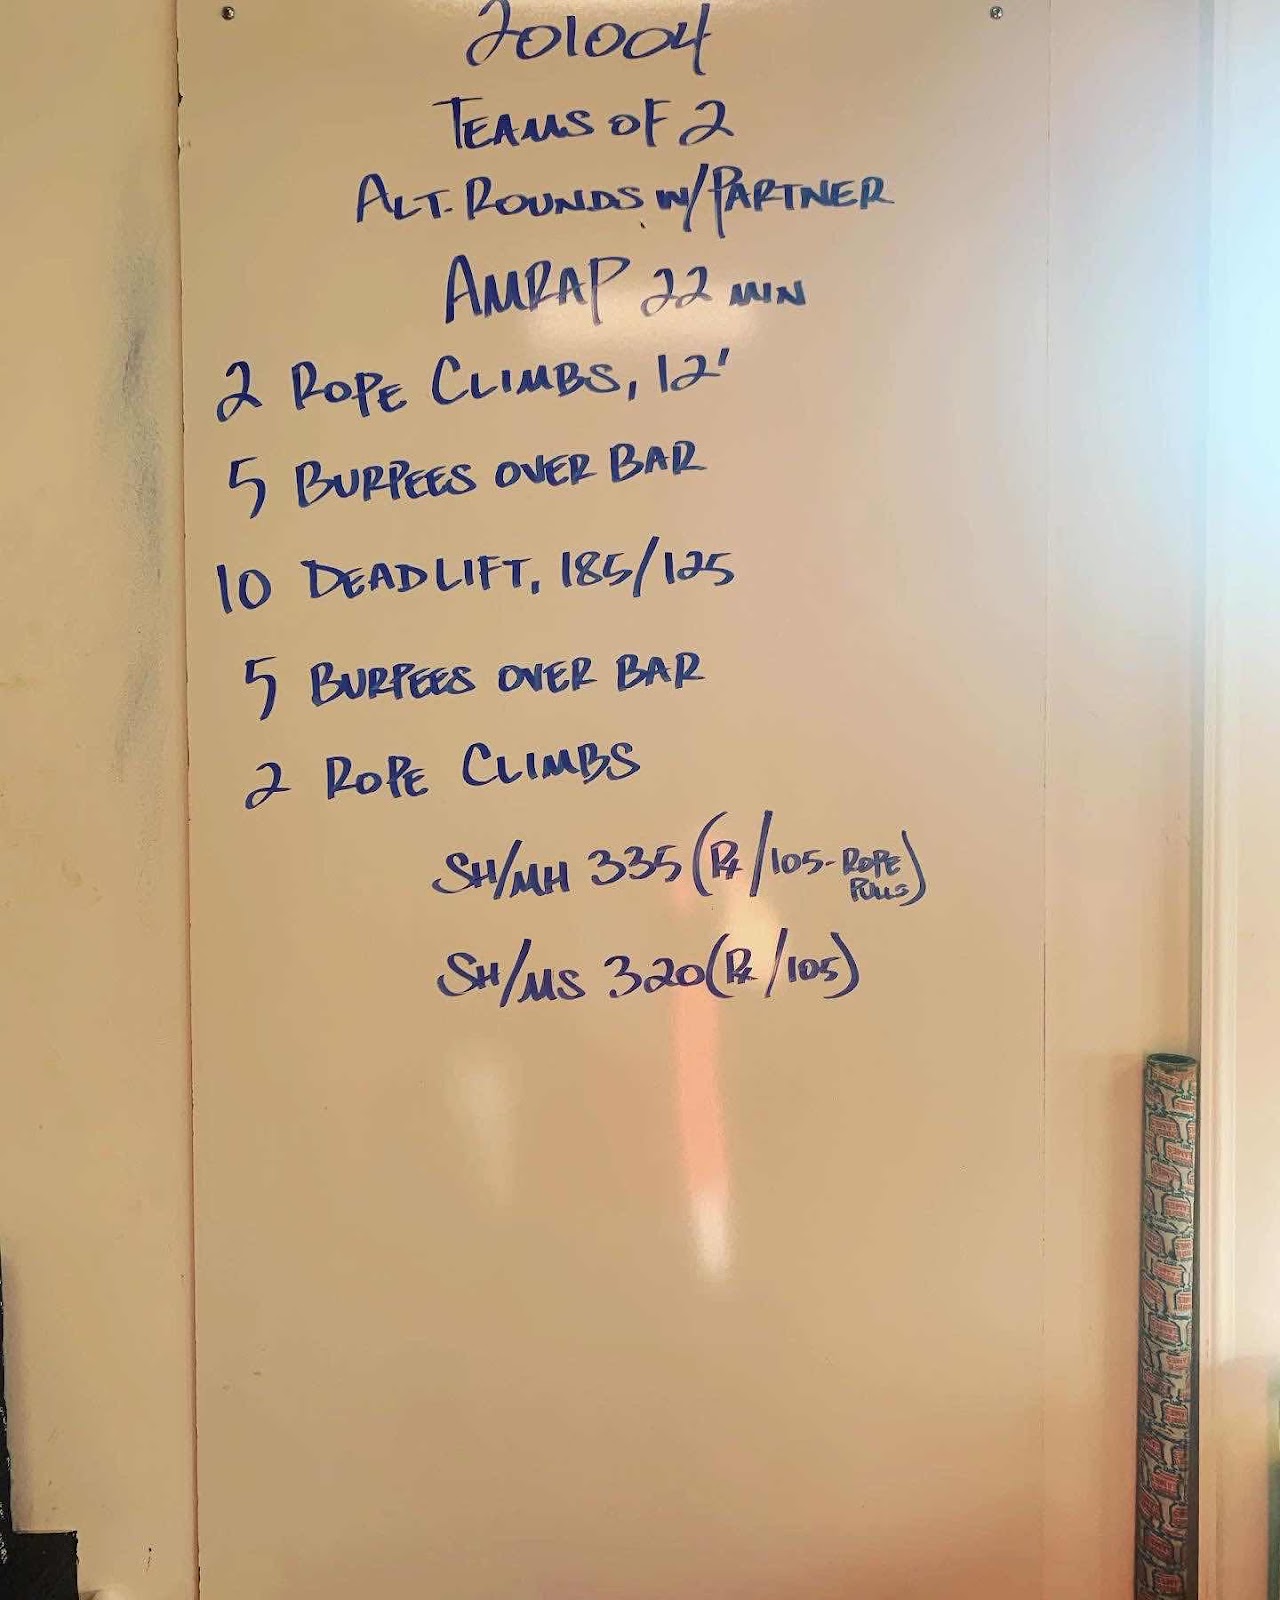 201004
TEAMS OF 2
ALT. ROUNDS W/PARTNER
AMRAP 22 MIN
2 ROPE CLIMBS, 12'
5 BURPEES OVER BAR
10 DEADLIFT, 185/125
5 BURPEES OVER BAR
2 ROPE CLIMBS
SH/MH 335 (Rx/105-ROPE PULLS)
SH/MS 320 (Rx/105)